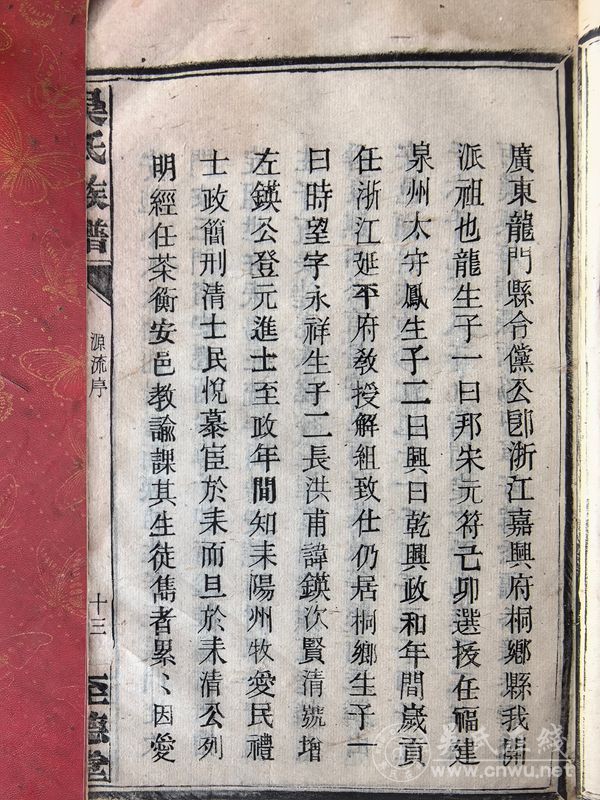 廣東龍門縣令儻公卽浙江嘉興府桐鄉縣我開
派祖也龍生子一曰邦宋元符己卯選授任福建
泉州太守鳳生子二曰興曰乾興政和年間歲貢
任浙江延平府敎授解組致仕仍居桐鄉生子一
曰時望字永祥生子二長洪甫諱鍈次賢清號增
左鍈公登元進士至政年間知耒陽州牧愛民禮
士政簡刑清士民悅慕宦於耒而旦於耒清公列
明經任茶衡安邑教諭課其生徒雋者累〻因愛
吳氏族譜
源流序
十三
至德堂
吴氏在线
www.cnwu.net